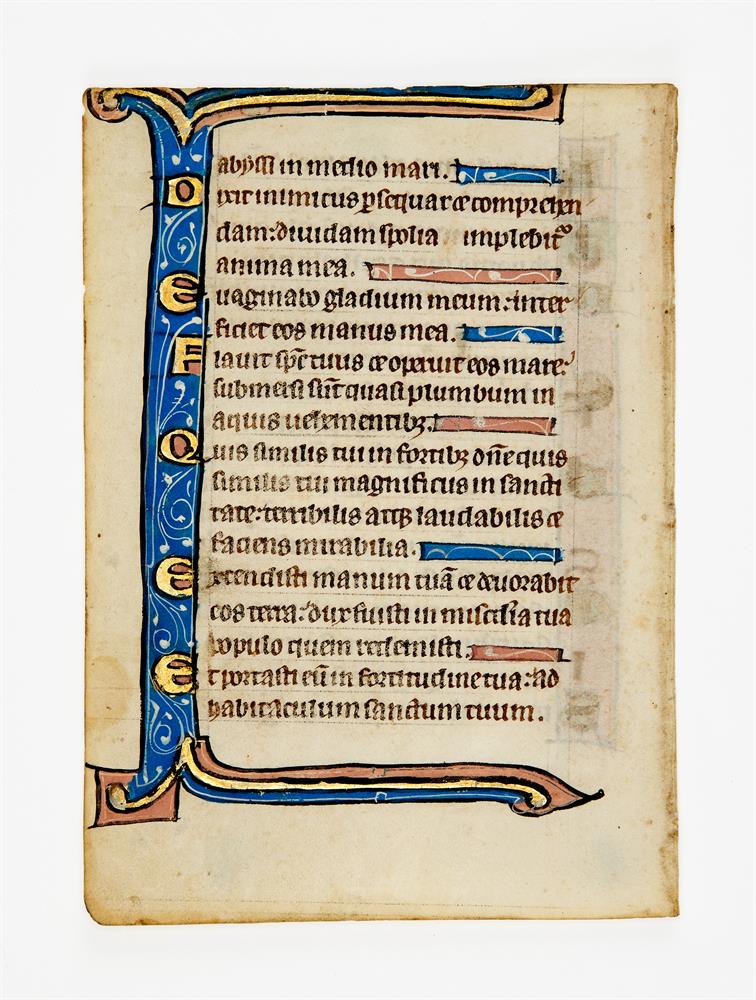 abyssi in medio mari.
Dixit inimicus p̲sequar ⁊ comprehen
dam: diuidam spolia implebit᷑
anima mea.
Euaginabo gladium meum: inter
ficiet eos manus mea.
Flauit sp̄c tuus ⁊ operuit eos mare:
submersi sūt quasi plumbum in
aquis uehementibꝫ.
Quis similis tui in fortibꝫ dn̄e quis
similis tui magnificus in sancti
tate: terribilis atqꝫ laudabilis ⁊
faciens mirabilia.
Extendisti manum tuā ⁊ deuorabit
eos terra: dux fuisti in misc̄dia tua
populo quem redemisti.
Et portasti eū in fortitudine tua: ad
habitaculum sanctum tuum.